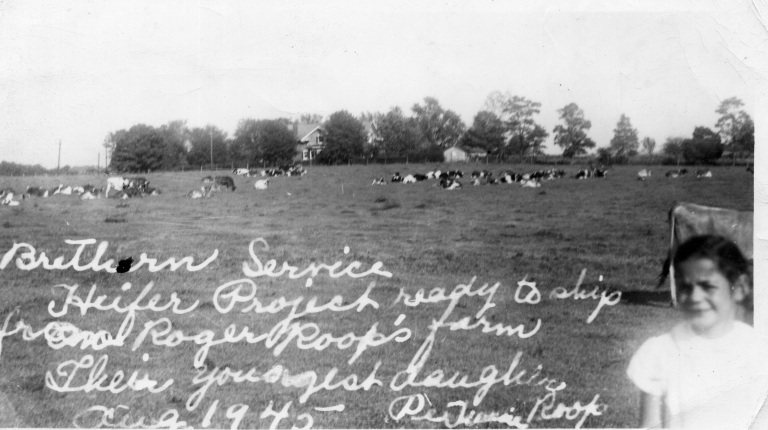 Brethern Service
Heifer Project ready to ship
from Roger Roop's farm
Their youngest daughter
Aug 1945 Roop